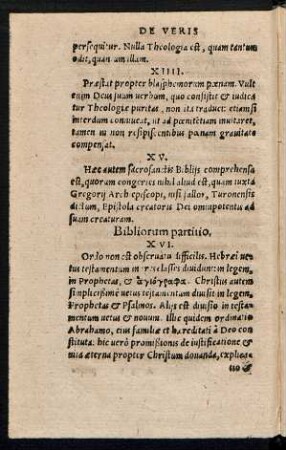 DE VERIS
persequitur. Nulla Theologia est, quam tantum
odit, quam am illam.
XIIII.
Præstat propter blasphemorum pœnam. Vult
enim Deus suum verbum, quo consistit & iudica
tur Theologiæ puritas, non ita traduci: etiam si
interdum conniveat, ut ad pœnitetiam invitaret,
tamen in non resipiscentibus pœnam gravitate
compensat.
XV.
Hæc autem sacrosanctis Biblijs comprehensa
est, quorum congeries nihil aliud est, quam iuxta
Gregorij Arch episcopi, nisi fallor, Turonensis
dictum, Epistola creatoris Dei omnipotentis ad
suam creaturam.
Bibliorum partitio.
XVI.
Ordo non est observatu difficilis. Hebræi ve=
tus testamentum in tres classes dividunt: in legem,
in Prophetas, & ἁγιόγραφα. Christus autem
simplicissimè vetus testamentum divisit in legem,
Prophetas & Psalmos. Alij est divisio in testa=
mentum vetus & novum. Illic quidem ordinatio
Abrahamo, eius familiæ et hæreditati à Deo con
stituta: hic verò promissionis de iustificatione &
vita æterna propter Christum donanda, explica=
tio &